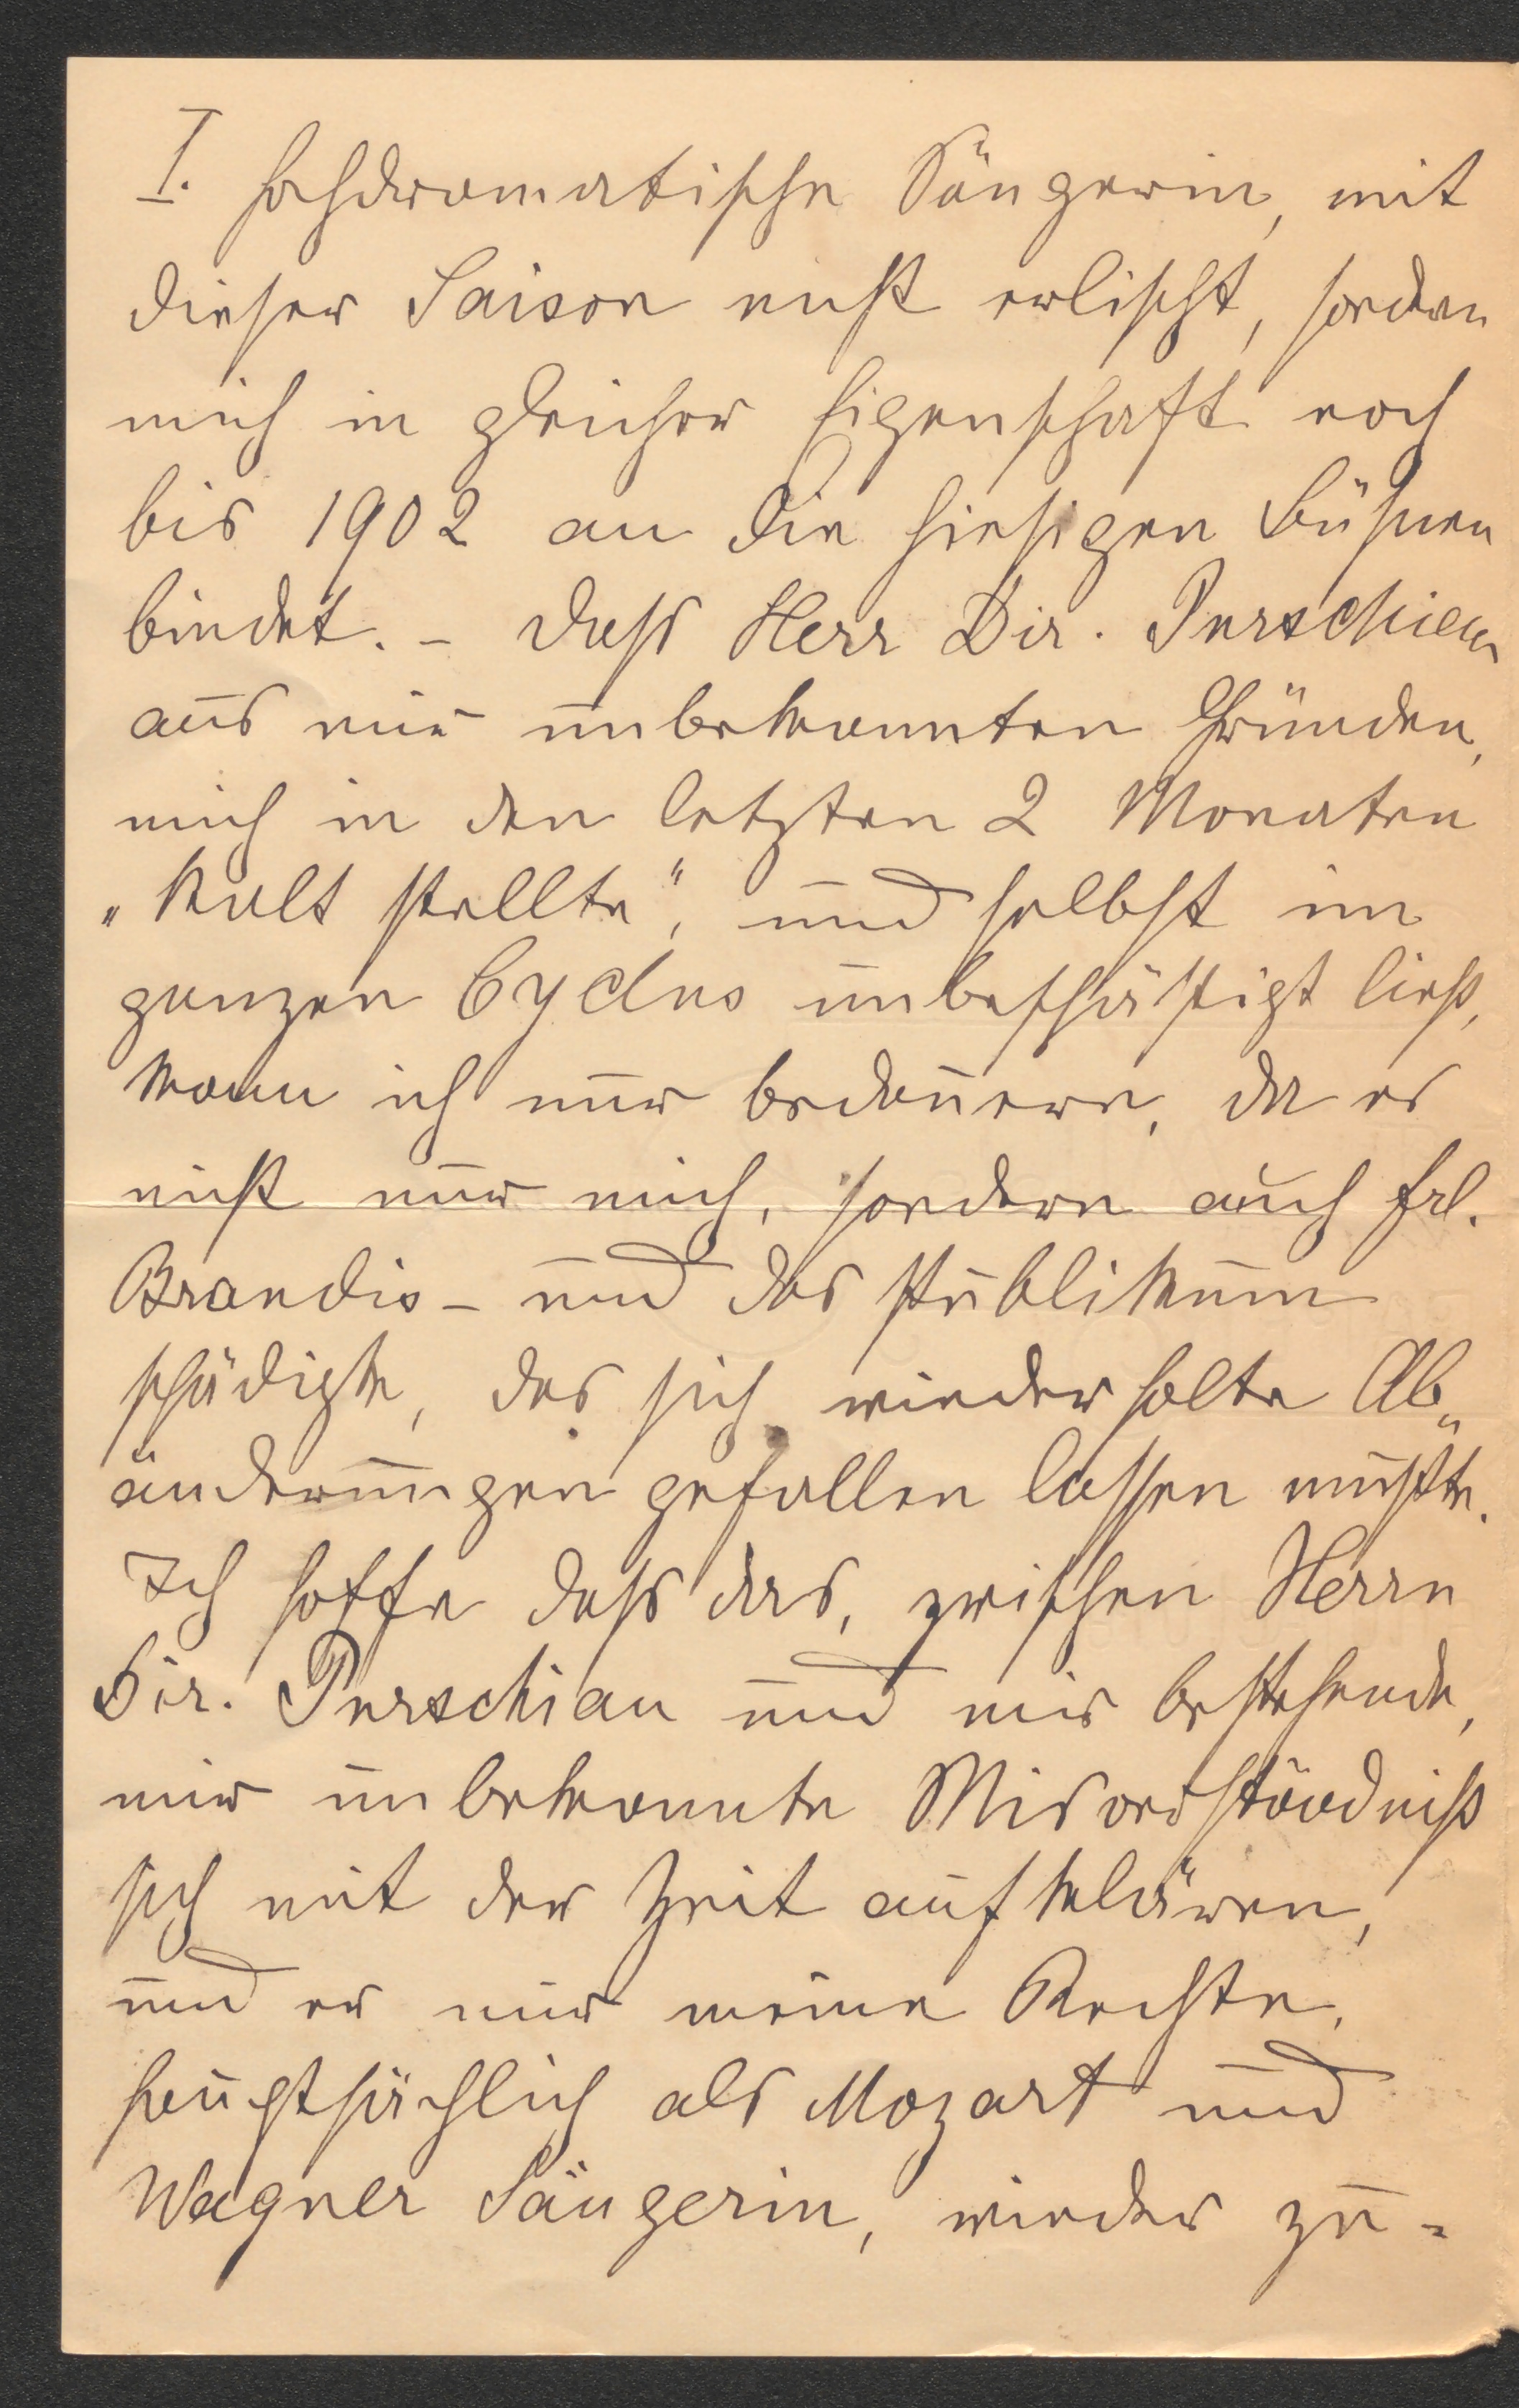 I. hochdramatische Sängerin, mit
dieser Saison nicht erlischt, sondern
mich in gleicher Eigenschaft noch
bis 1902 an die hiesigen Bühnen
bindet. – Dass Herr Dir. Purschian
aus mir unbekannten Gründen,
mich in den letzten 2 Monaten
„kalt stellte“, und selbst im
ganzen Cyclus unbeschäftigt ließ,
kann ich nur bedauern, da er
nicht nur mich, sondern auch Frl.
Brandis – und das Publikum
schädigte, das sich wiederholte Ab„
änderungen gefallen lassen mußte.
Ich hoffe dass das, zwischen Herrn
Dir. Purschian und mir bestehende,
mir unbekannte Misverständniß
sich mit der Zeit aufklären,
und er mir meine Rechte,
hauptsächlich als Mozart und
Wagner Sängerin, wieder zu-